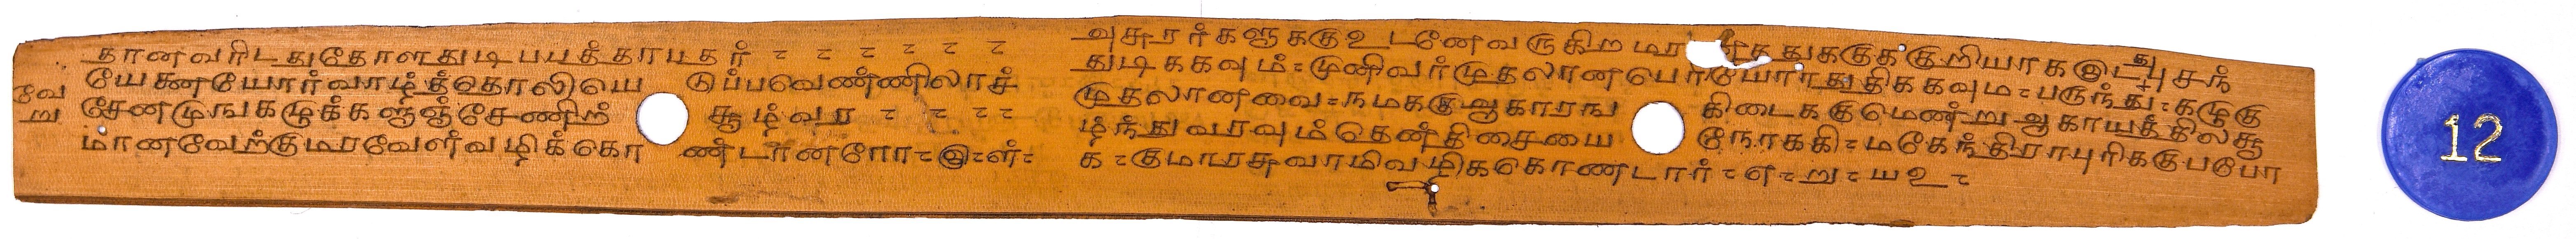 தானவரிடதுதோளதுடிபயத்தாயதர் - - - - - -
யேகனயோர்வாழ்த்தொலியெடுப்பவெண்ணிலாச்
சேனமுஙகழுக்களுஞ்சேணிற்சூழ்வர - - - -
மானவேற்குமரவேள்வழிக்கொண்டானரோ - இ - ள் -
வே
று
அசுரர்களுககுஉடனேவருகிற துககுக்குறியாகஇடபுசந்
துடிககவும் - முனிவர்முதலானபெரியோர்துதிககவும - பருந்து - கழுகு
முதலானவை - நமககுஆகாரஙகிடைககுமெண்றுஆகாயத்திலசூ
ழ்ந்துவரவும்தெண்திசையைநோககி - மகேந்திராபுரிககுபபோ
க - குமாரசுவாமிவழிககொணடார் - எ - று - ய௨ -
12